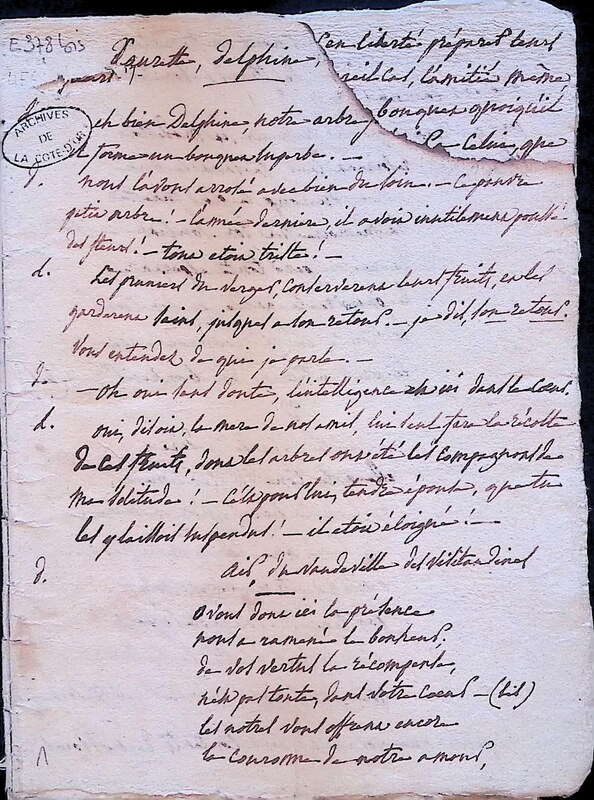 E 378 bis
Laurette, delphine,
en liberté préparer leurs
l'amitié même
ARCHIVES
DE
LA COTE-D'OR
eh bien Delphine, notre arbre
bouquer quoiqu'il
forme un bouquer superbe. —
celui, que
nous l'avons arrosé avec bien du soin. — ce pauvre
petit arbre! — l'année derniere, il avoit inutilement poussé
des fleurs! — tout etoit triste! —
d.
Les pruniers du verger, conserverons leurs fruits, en les
garderons sains, jusques a son retour. — je dis, son retour.
vous entendez de qui je parle. —
— oh oui sans doute, l'intelligence est ici dans le cœur.
d.
oui, disoit, la mere de nos amis, lui seul fera la récolte
de ces fruits, dont les arbres ont été les compagnons de
ma solitude! — c'est pour lui, tendre épouse, que tu
les y laissois suspendus! — il etoit éloigné! —
d.
air, du vaudeville des visitandines
avous dont ici la présence
nous a ramené le bonheur,
de vos vertus la récompense,
n'est pas toute, dans votre cœur — (bis)
les notres vous offrent encore
la couronne de notre amour,